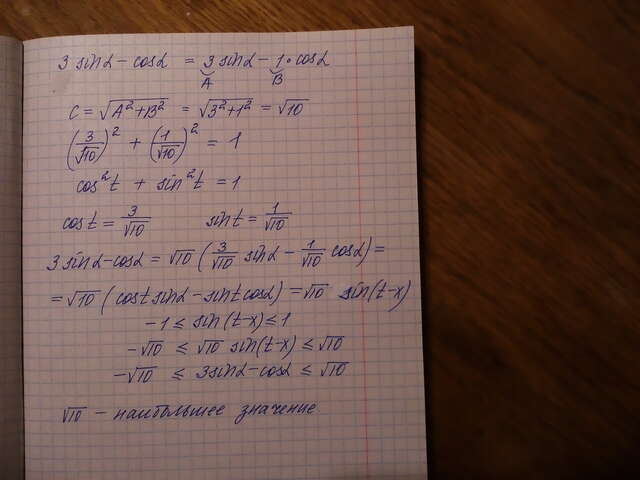 3 sinα - cosα = 3 sinα - 1·cosα
A B
C = √A²+B² = √3²+1² = √10
(3/√10)² + (1/√10)² = 1
cos²t + sin²t = 1
cost = 3/√10 sint = 1/√10
3 sinα - cosα = √10 (3/√10 sinα - 1/√10 cosα) =
= √10 (cost sinα - sint cosα) = √10 sin(t-x)
-1 ≤ sin(t-x) ≤ 1
-√10 ≤ √10 sin(t-x) ≤ √10
-√10 ≤ 3sinα - cosα ≤ √10
√10 - наибольшее значение